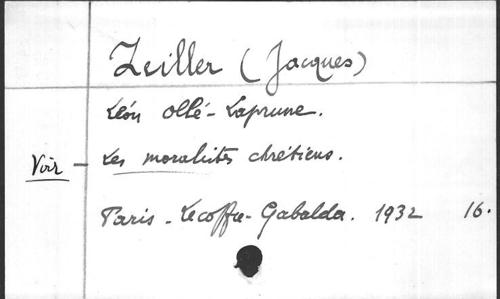 Zeiller (Jacques)
Léon Ollé-Laprune.
Voir - Les moralistes chrétiens.
Paris - Lecoffre-Gabalda. 1932 16.